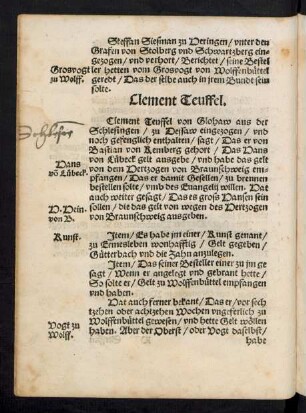 Steffan Siesman zu Deringen / vnter den
Grafen von Stolbrg vnd Schwartzberg ein
gezogen / vnd verhort / Berichtet / seine Bestel
Grosvogt
zu Wolff.
ler hetten vom Grosvogt von Wolffenbüttel
geredt / Das der selbe auch in jrem Bundt sein
solte.
Clement Teuffel.
Clement Teuffel von Glohaw aus der
Schlesingen / zu Dessaw eingezogen / vnd
noch gefenglich enthalten / sagt / Das er von
Bastian von Kemberg gehort / Das Dans
Dans
vō Lübeck.
von Lübeck gelt ausgebe / vnd habe das gelt
von dem Hertzogen von Braunschweig em-
pfangen / Das er damit Gesellen / zu brennen
bestellen solte / vmb des Euangelij willen. Dat
auch weiter gesagt / Das es gros Dansen sein
sollen / die das gelt von wegen des Hertzogen
von Braunschweig ausgeben.
D. Dein.
von B.
Kunst.
Item / Es habe jm einer / Kunst genant /
zu Ermesleben wonhafftig / Gelt gegeben /
Gütterbach vnd die Zahn anzulegen.
Item / Das seiner Besteller einer zu jm ge
sagt / Wenn er angelegt vnd gebrant hette /
So solte er / Gelt zu Wolffenbüttel empfangen
vnd haben.
Dat auch ferner bekant / Das er / vor sech
tzehen oder achtzehen Wochen vngeferlich zu
Wolffenbüttel gewesen / vnd hette Gelt wöllen
Vogt zu
Wolff.
haben. Aber der Oberst / oder Vogt daselbst /
habe